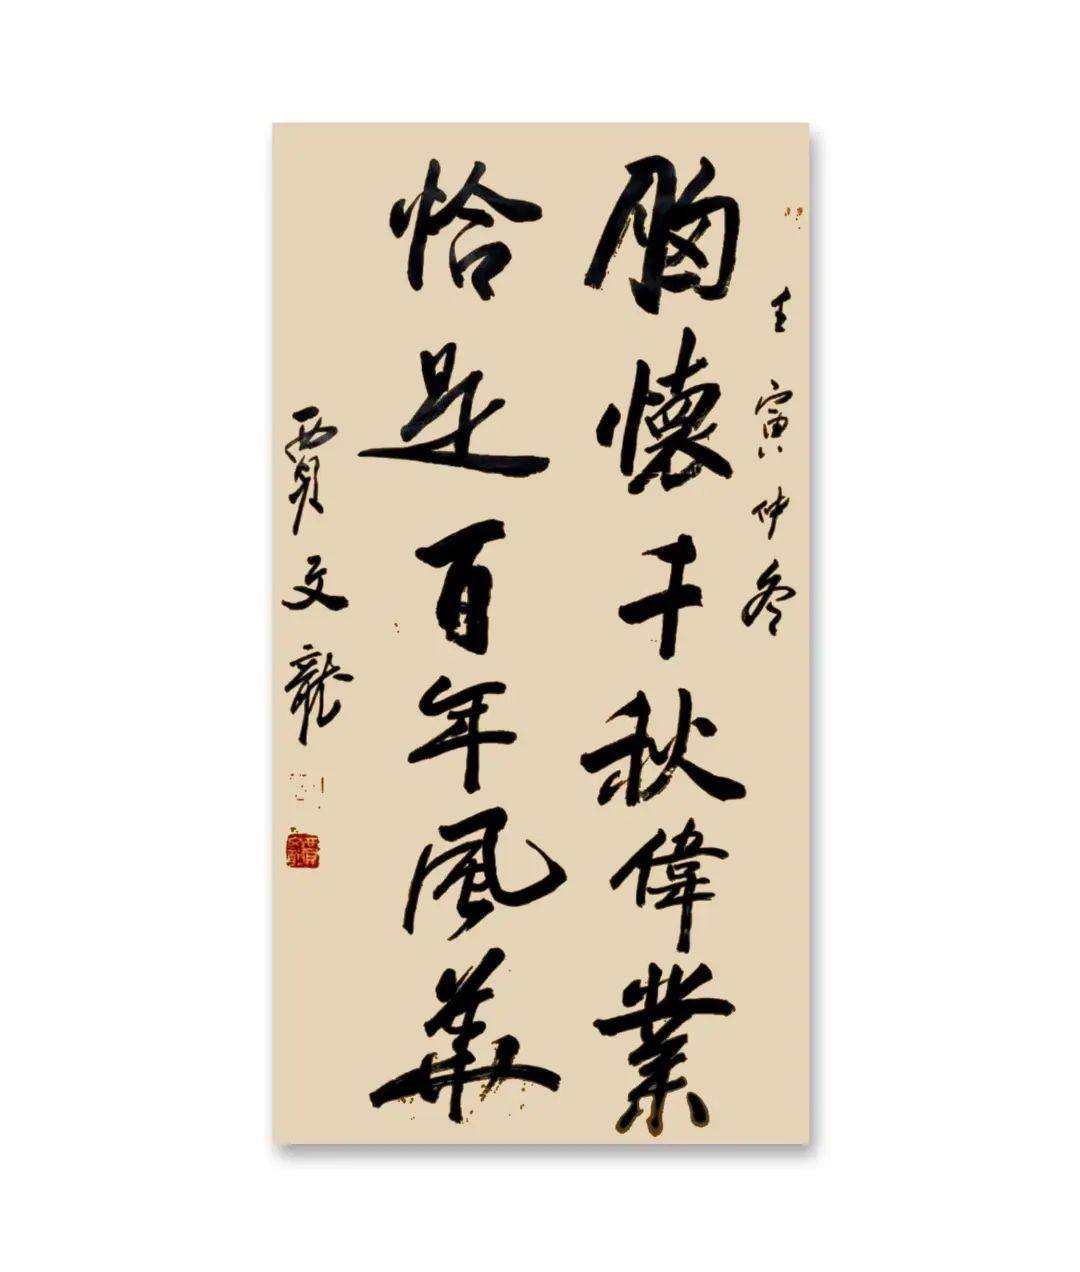 壬寅仲冬
胸懷千秋偉業
恰是百年風華
賈文龍